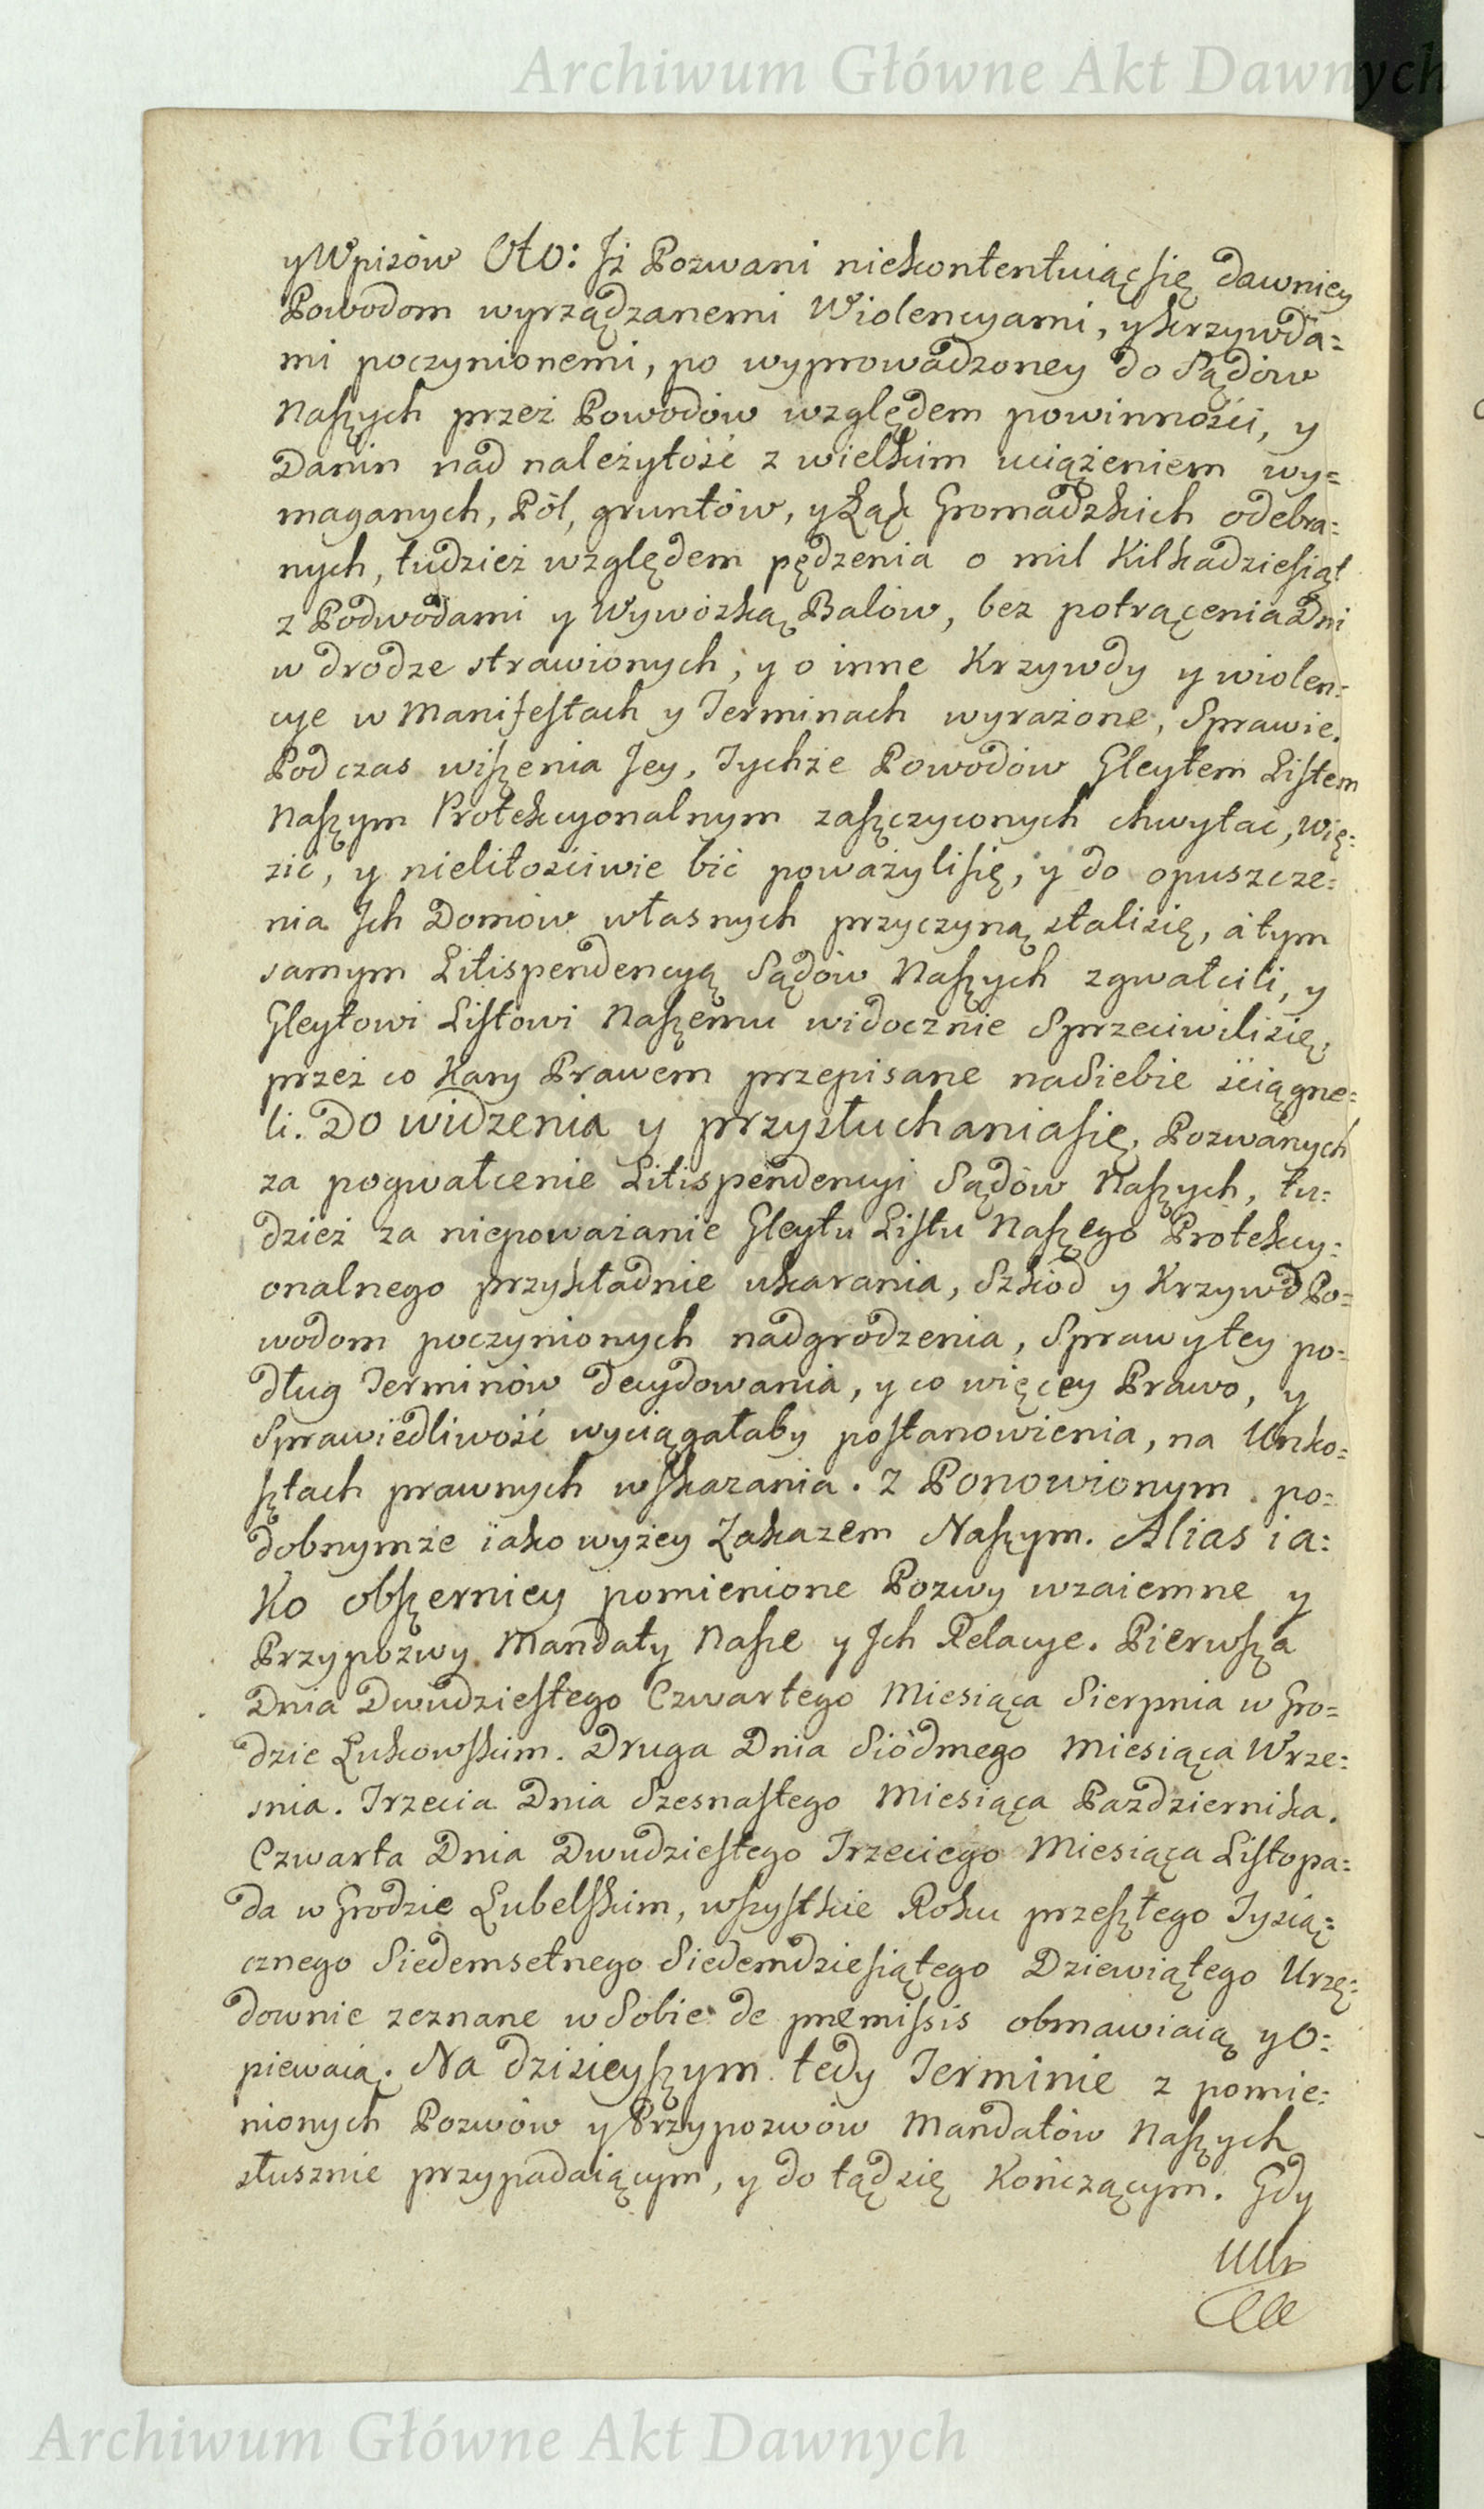 Archiwum Główne Akt Dawnych
y Wpisów Oto: Jż Pozwani niekontentuiąc się dawniey
Powodom wyrządzanemi Wiolencyami, y krzywda=
mi poczynionemi, po wyprowadzoney do Sądów
Naszych przez Powodów względem powinności, y
Danin nad należytość z wielkim uciążeniem wy=
maganych, Pól, gruntów, y Łąk Gromadzkich odebra=
nych, tudzież względem pędzenia o mil Kilkadziesiąt
z Podwodami y Wywózką Balów, bez potrącenia Dni
w drodze strawionych, y o inne Krzywdy y wiolen=
cye w Manifestach y Terminach wyrażone, Sprawie.
Podczas wiszenia Jey, Tychże Powodów Gleytem Listem
Naszym Protekcyonalnym zaszczyconych chwytać, Wię=
zić, y nielitościwie bić poważyli się, y do opuszcze=
nia Jch Domów własnych przyczyną stali się, a tym
samym Litispendencyą Sądów Naszych zgwałcili, y
Gleytowi Listowi Naszemu widocznie Sprzeciwili się,
przez co Kary Prawem przepisane na Siebie ściągne=
li. Do widzenia y przysłuchania się, Pozwanych
za pogwałcenie Litispendencyi Sądów Naszych, tu=
dzież za niepoważanie Gleytu Listu Naszego Protekcy=
onalnego przykładnie ukarania, Szkód y Krzywd Po=
wodom poczynionych nadgrodzenia, Sprawy tey po=
dług Terminów decydowania, y co więcey Prawo, y
Sprawiedliwość wyciągałaby postanowienia, na Unko=
sztach prawnych wskazania. Z Ponowionym po=
dobnymże iako wyżey Zakazem Naszym. Alias ia=
Ko obszerniey pomienione Pozwy wzaiemne y
Przypozwy Mandaty Nasze y Jch Relacye. Pierwsza
Dnia Dwudziestego Czwartego Miesiąca Sierpnia w Gro=
dzie Łukowskim. Druga Dnia Siódmego Miesiąca Wrze=
snia. Trzecia Dnia Szesnastego Miesiąca Października.
Czwarta Dnia Dwudziestego Trzeciego Miesiąca Listopa=
da w Grodzie Lubelskim, wszystkie Roku przeszłego Tysią=
cznego Siedemsetnego Siedemdziesiątego Dziewiątego Urzę=
downie zeznane w Sobie de premissis obmawiaią y O=
piewaią. Na dzisieyszym tedy Terminie z pomie=
nionych Pozwów y Przypozwów Mandatów Naszych
słusznie przypadaiącym, y do tąd się Kończącym. Gdy
Ur
Archiwum Główne Akt Dawnych